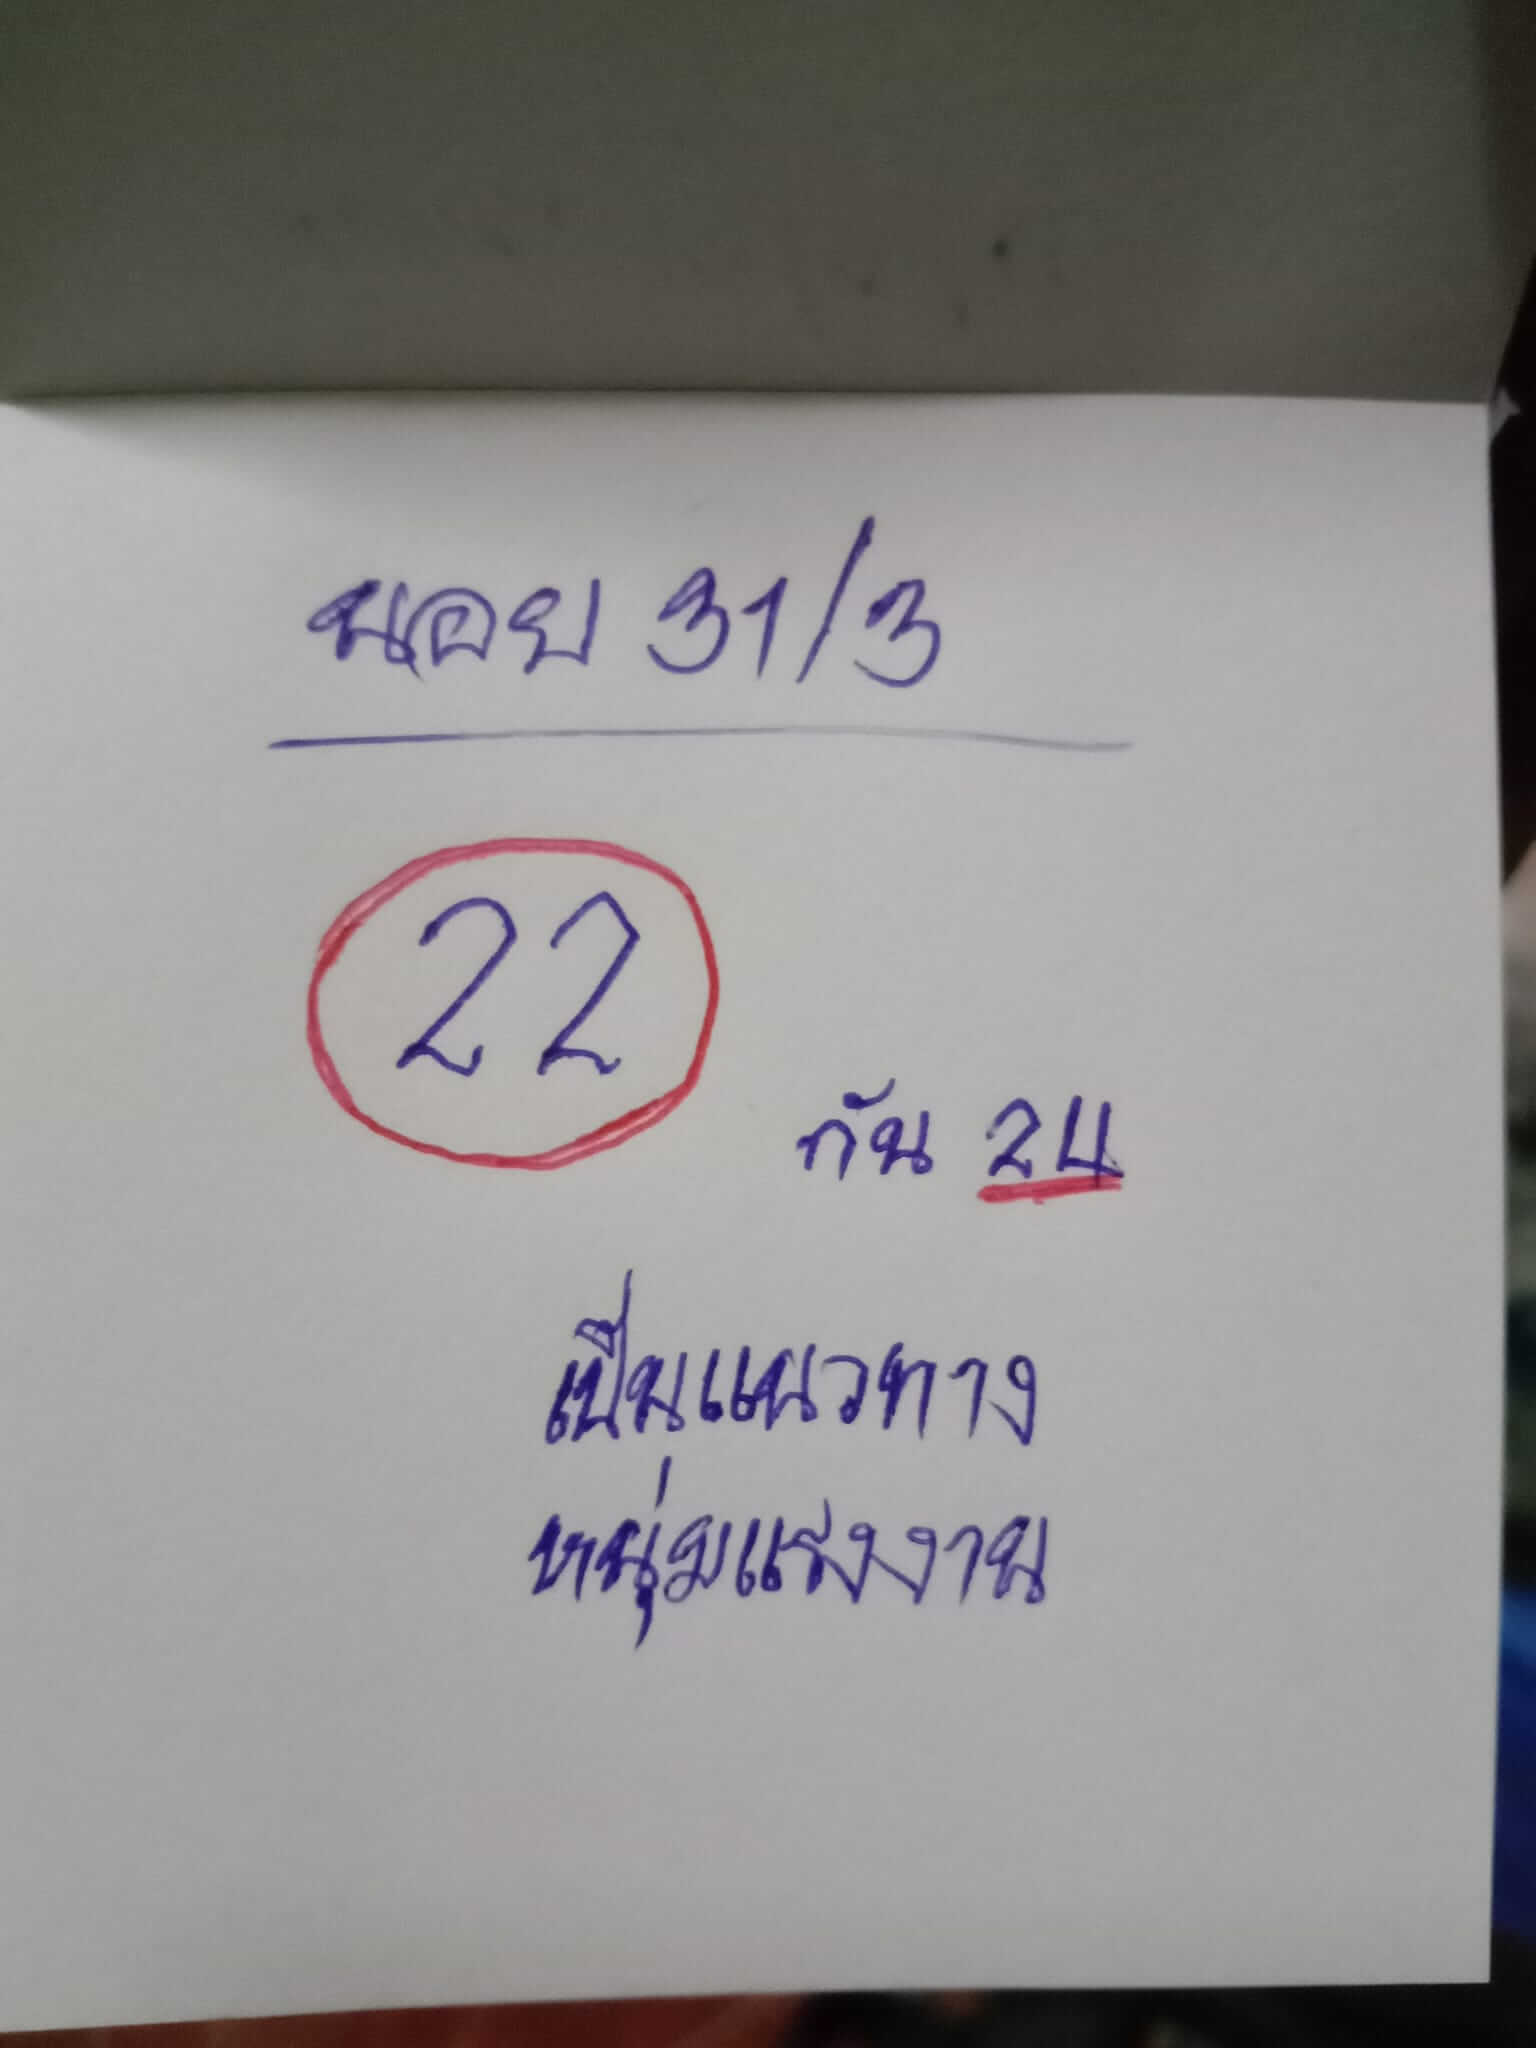 นอย 31/3
22
กัน 24
เป็นแนวทาง
หนุ่มแรงงาน